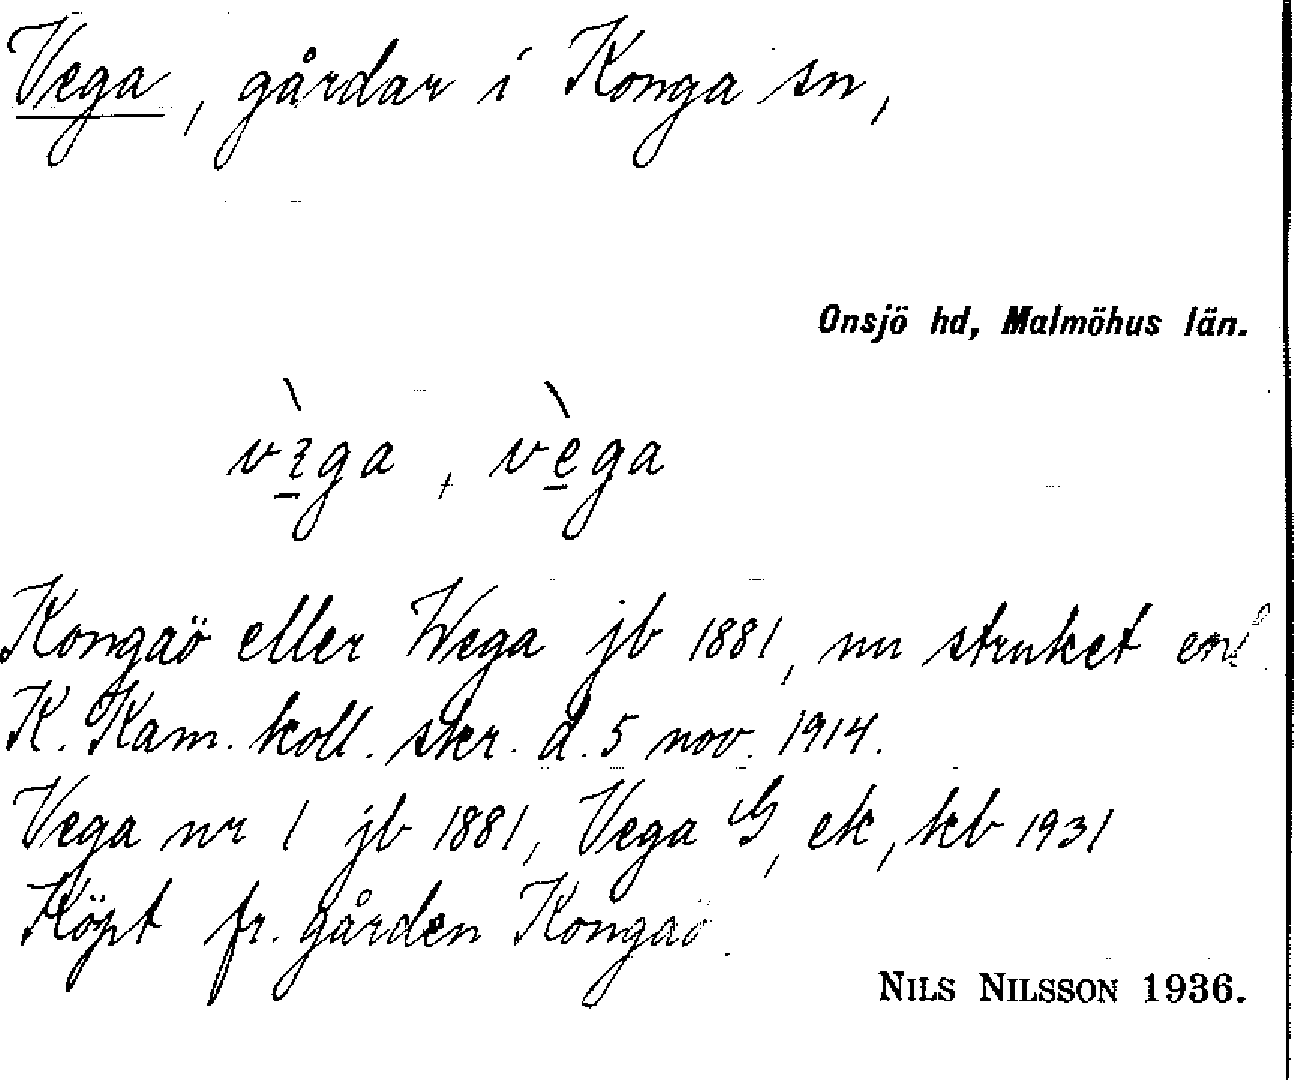 Vega, gårdar i Konga sn,
Onsjö hd, Malmöhus län.
vega
Kongaö eller Wega jb 1881, nu struket enl
K. Kam. koll. skr. d. 5 nov. 1914.
Vega nr 1 jb 1881, Vega G, ek, kb 1931
Köpt fr. gården Kongaö.
NILS NILSSON 1936.